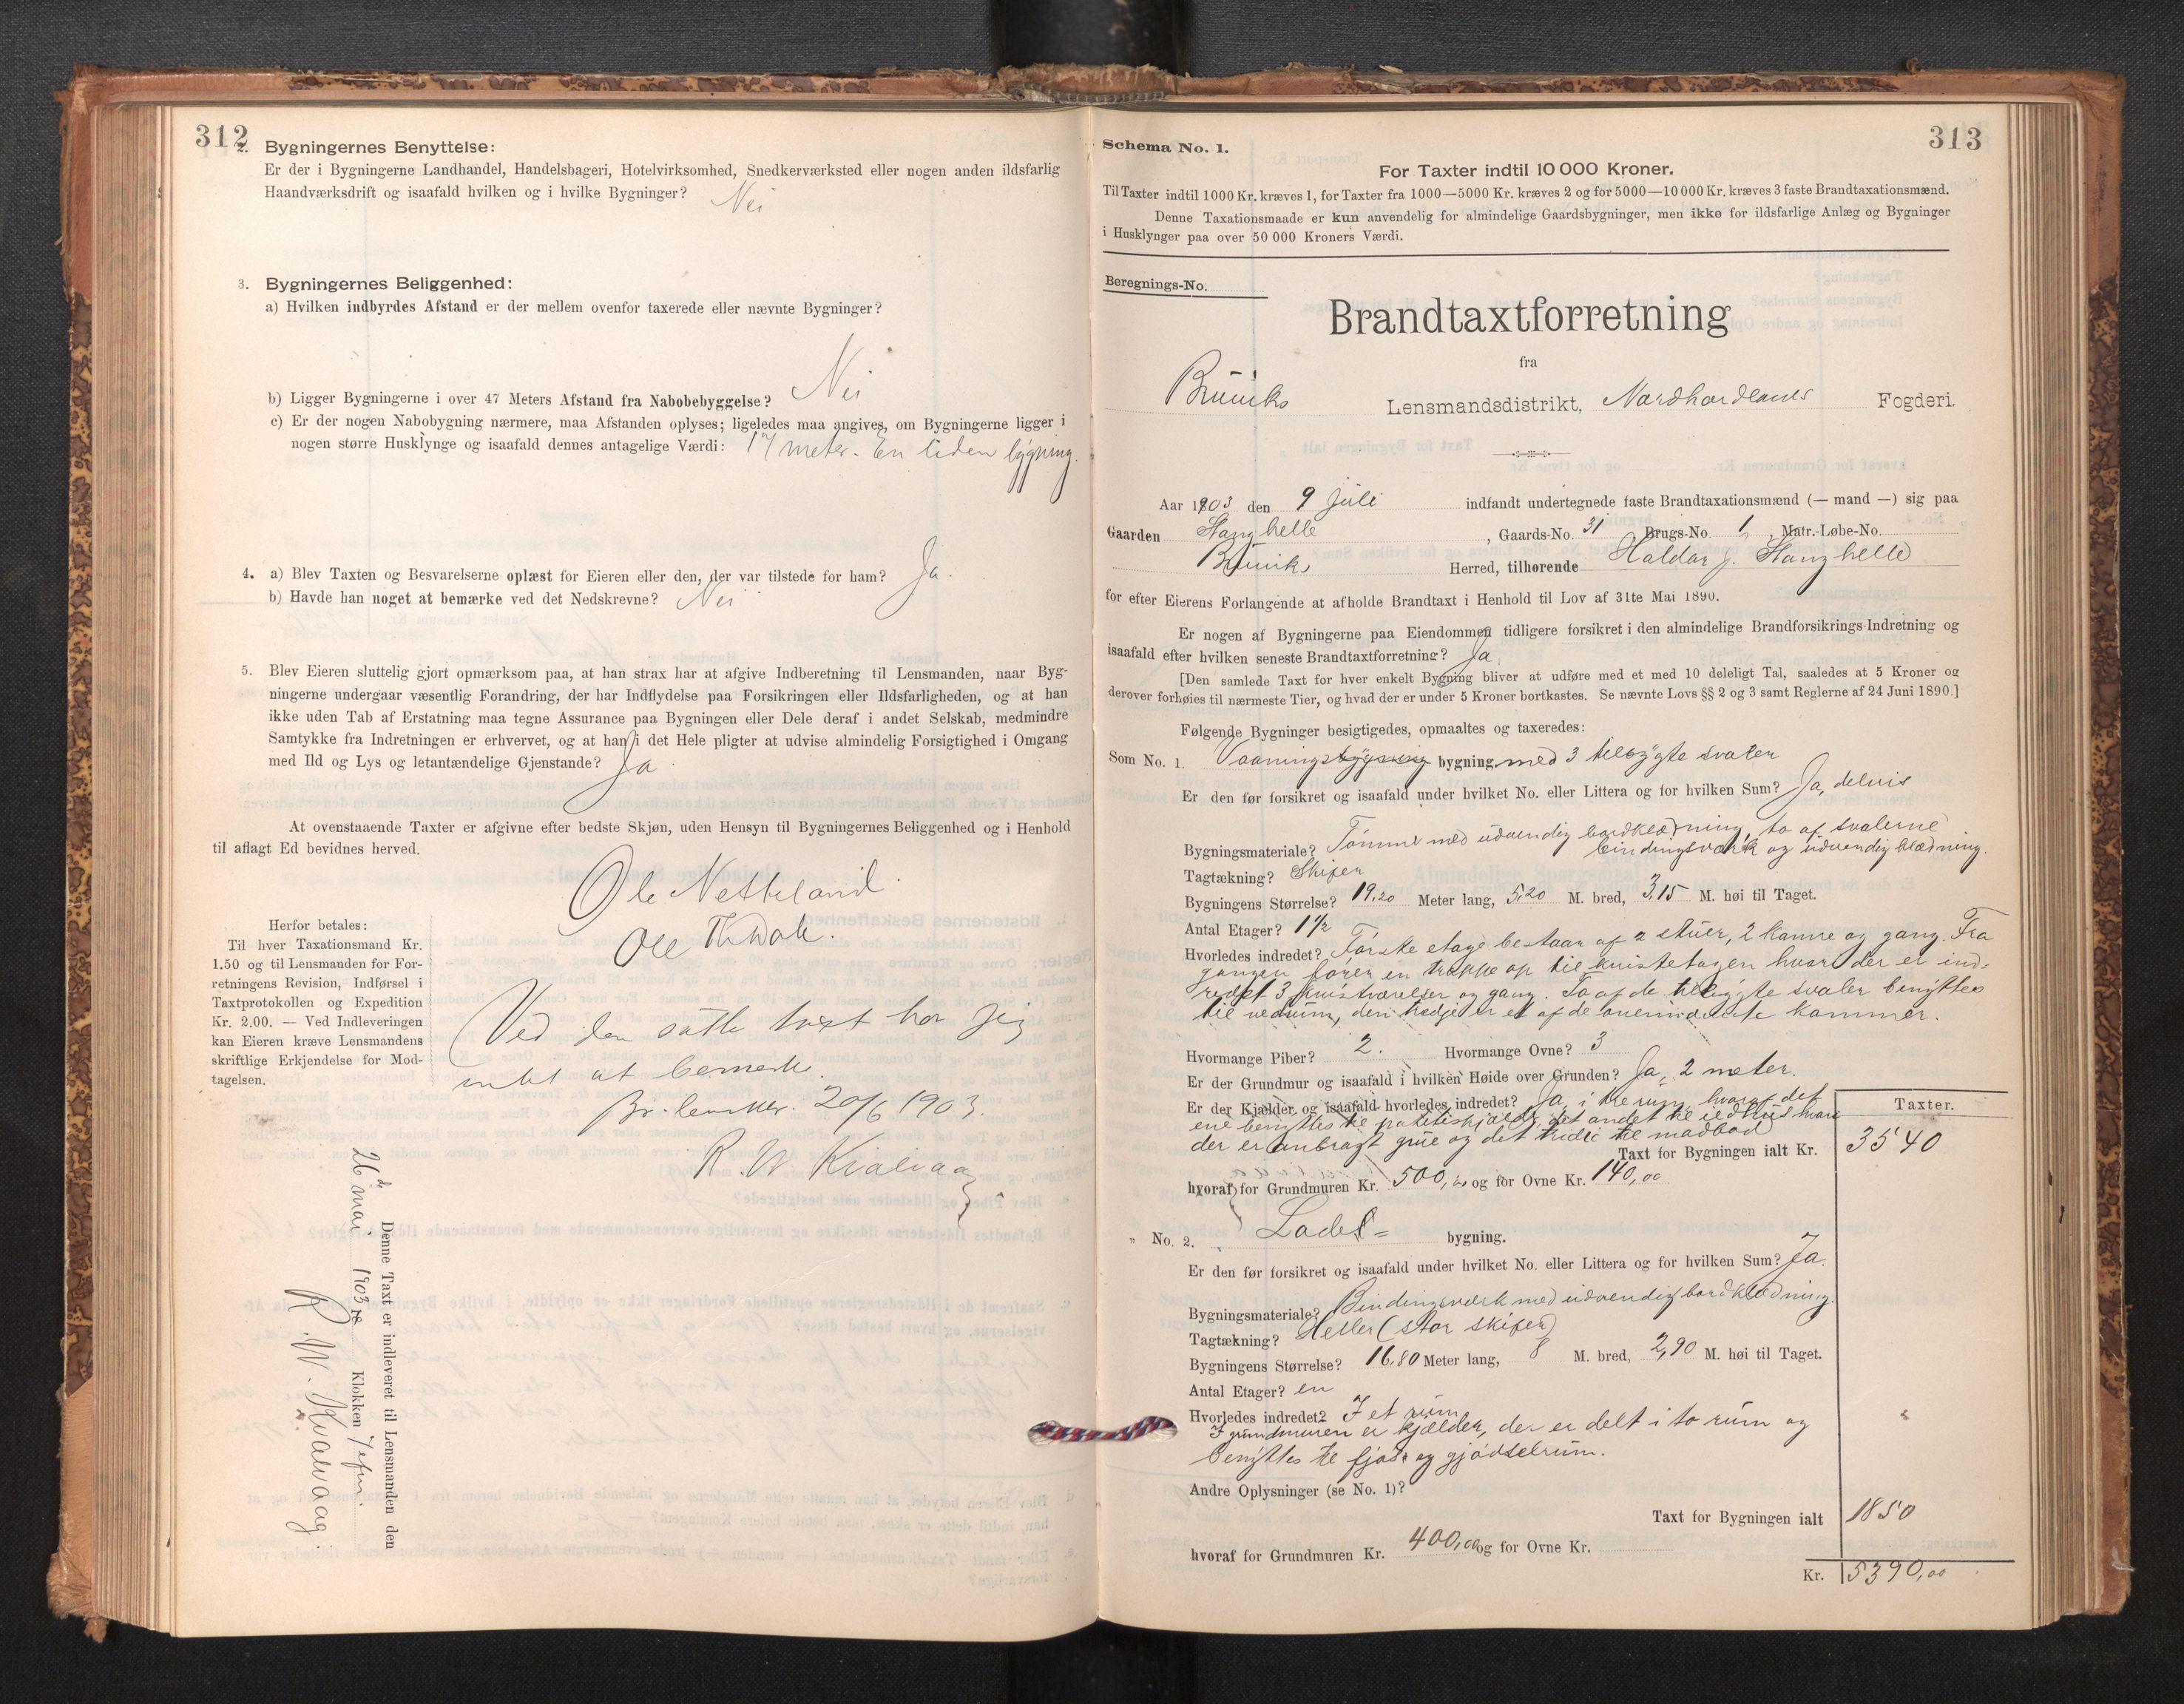 312
2. Bygningernes Benyttelse:
Er der i Bygningerne Landhandel, Handelsbageri, Hotelvirksomhed, Snedkerværksted eller nogen anden ildsfarlig
Haandværksdrift og isaafald hvilken og i hvilke Bygninger? Nei
3. Bygningernes Beliggenhed:
a) Hvilken indbyrdes Afstand er der mellem ovenfor taxerede eller nævnte Bygninger?
b) Ligger Bygningerne i over 47 Meters Afstand fra Nabobebyggelse? Nei
c) Er der nogen Nabobygning nærmere, maa Afstanden oplyses; ligeledes maa angives, om Bygningerne ligger i
nogen større Husklynge og isaafald dennes antagelige Værdi: 17 meter. En liden bygning.
4. a) Blev Taxten og Besvarelserne oplæst for Eieren eller den, der var tilstede for ham? Ja.
b) Havde han noget at bemærke ved det Nedskrevne? Nei
5. Blev Eieren sluttelig gjort opmærksom paa, at han strax har at afgive Indberetning til Lensmanden, naar Byg-
ningerne undergaar væsentlig Forandring, der har Indflydelse paa Forsikringen eller Ildsfarligheden, og at han
ikke uden Tab af Erstatning maa tegne Assurance paa Bygningen eller Dele deraf i andet Selskab, medmindre
Samtykke fra Indretningen er erhvervet, og at han i det Hele pligter at udvise almindelig Forsigtighed i Omgang
med Ild og Lys og letantændelige Gjenstande? Ja
At ovenstaaende Taxter er afgivne efter bedste Skjøn, uden Hensyn til Bygningernes Beliggenhed og i Henhold
til aflagt Ed bevidnes herved.
Ole Netteland.
Ole
Herfor betales:
Til hver Taxationsmand Kr.
1.50 og til Lensmanden for For-
retningens Revision, Indførsel i
Taxtprotokollen og Expedition
Kr. 2.00. — Ved Indleveringen
kan Eieren kræve Lensmandens
skriftlige Erkjendelse for Mod-
tagelsen.
Ved den satte taxt har jeg
intet at bemerke.
20/6 1903.
R. W. Kvalvaag
Denne Taxt er indleveret til Lensmanden den
26de mai 1903 Klokken 7 efm.
R. W. Kvalvaag.
313
Schema No. 1.
For Taxter indtil 10 000 Kroner.
Til Taxter indtil 1000 Kr. kræves 1, for Taxter fra 1000—5000 Kr. kræves 2 og for 5000—10 000 Kr. kræves 3 faste Brandtaxationsmænd.
Denne Taxationsmaade er kun anvendelig for almindelige Gaardsbygninger, men ikke for ildsfarlige Anlæg og Bygninger
i Husklynger paa over 50 000 Kroners Værdi.
Beregnings-No.
Brandtaxtforretning
fra
Bruviks Lensmandsdistrikt, Nordhordlands Fogderi.
Aar 1903 den 9 Juli indfandt undertegnede faste Brandtaxationsmænd (— mand —) sig paa
Gaarden Stanghelle, Gaards-No. 31 Brugs-No. 1 Matr.-Løbe-No.
Bruviks Herred, tilhørende Haldor J. Stanghelle
for efter Eierens Forlangende at afholde Brandtaxt i Henhold til Lov af 31te Mai 1890.
Er nogen af Bygningerne paa Eiendommen tidligere forsikret i den almindelige Brandforsikrings-Indretning og
isaafald efter hvilken seneste Brandtaxtforretning? Ja,
[Den samlede Taxt for hver enkelt Bygning bliver at udføre med et med 10 deleligt Tal, saaledes at 5 Kroner og
derover forhøies til nærmeste Tier, og hvad der er under 5 Kroner bortkastes. Se nævnte Lovs §§ 2 og 3 samt Reglerne af 24 Juni 1890.]
Følgende Bygninger besigtigedes, opmaaltes og taxeredes:
Som No. 1. Vaaningsbygning bygning. med 3 tilbygte svaler
Er den før forsikret og isaafald under hvilket No. eller Littera og for hvilken Sum? Ja, delvis
Bygningsmateriale? Tømmer med udvendig bordklædning, to af svalerne
bindingsværk og udvendig klædning.
Tagtækning? Skifer
Bygningens Størrelse? 19,20 Meter lang, 5,20 M. bred, 3,15 M. høi til Taget.
Antal Etager? 1 1/2
Hvorledes indredet? Første etage bestaar af 2 stuer, 2 kamre og gang. Fra
gangen fører en trappe op til kvistetagen hvor der er ind-
redet 3 kvistværelser og gang. To af de tilbygte svaler benyttes
til vedrum, den tredje er et af de kammer.
Hvormange Piber? 2. Hvormange Ovne? 3
Er der Grundmur og isaafald i hvilken Høide over Grunden? Ja, 2 meter.
Er der Kjælder og isaafald hvorledes indredet? Ja, i tre rum, hvoraf det
ene benyttes til potetiskjelder, det andet til ildhus hvor
der er anbragt grue og det tridie til madbod
Taxter.
Taxt for Bygningen ialt Kr. 3540
hvoraf for Grundmuren Kr. 500,00 og for Ovne Kr. 140,00
" No. 2. Lade- bygning.
Er den før forsikret og isaafald under hvilket No. eller Littera og for hvilken Sum? Ja.
Bygningsmateriale? Bindingsværk med udvendig bordklædning.
Tagtækning? Heller (stor skifer)
Bygningens Størrelse? 16,80 Meter lang, 8 M. bred, 2,90 M. høi til Taget.
Antal Etager? en
Hvorledes indredet? I et rum
I grundmuren er kjælder, der er delt i to rum og
benyttes til fjøs og gjødselrum.
Andre Oplysninger (se No. 1)?
Taxt for Bygningen ialt 1850
hvoraf for Grundmuren Kr. 400,00 og for Ovne Kr.
Kr. 5390,00